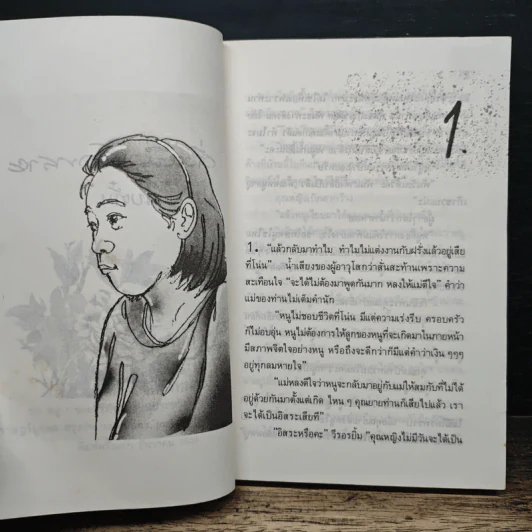 1.
1. "แล้วกลับมาทำไม ทำไมไม่แต่งงานกับฝรั่งแล้วอยู่เสีย
ที่โน่น" น้ำเสียงของผู้อาวุโสกว่าสั่นสะท้านเพราะความ
สะเทือนใจ "จะได้ไม่ต้องมาพูดกันมาก หลงให้แม่ดีใจ" คำว่า
แม่ของท่านไม่เต็มคำนัก
"หนูไม่ชอบชีวิตที่โน่น มีแต่ความเร่งรีบ ครอบครัว
ก็ไม่อบอุ่น หนูไม่ต้องการให้ลูกของหนูที่จะเกิดมาในภายหน้า
มีสภาพจิตใจอย่างหนู หรือถึงจะดีกว่าก็มีแต่คำว่าเงิน ๆๆๆ
อยู่ทุกลมหายใจ"
"แม่หลงดีใจว่าหนูจะกลับมาอยู่กับแม่ให้สมกับที่ไม่ได้
อยู่ด้วยกันมาตั้งแต่เกิด ไหน ๆ คุณยายท่านก็เสียไปแล้ว เรา
จะได้เป็นอิสระเสียที"
"อิสระหรือคะ" วีรอรยิ้ม "คุณหญิงไม่มีวันจะได้เป็น